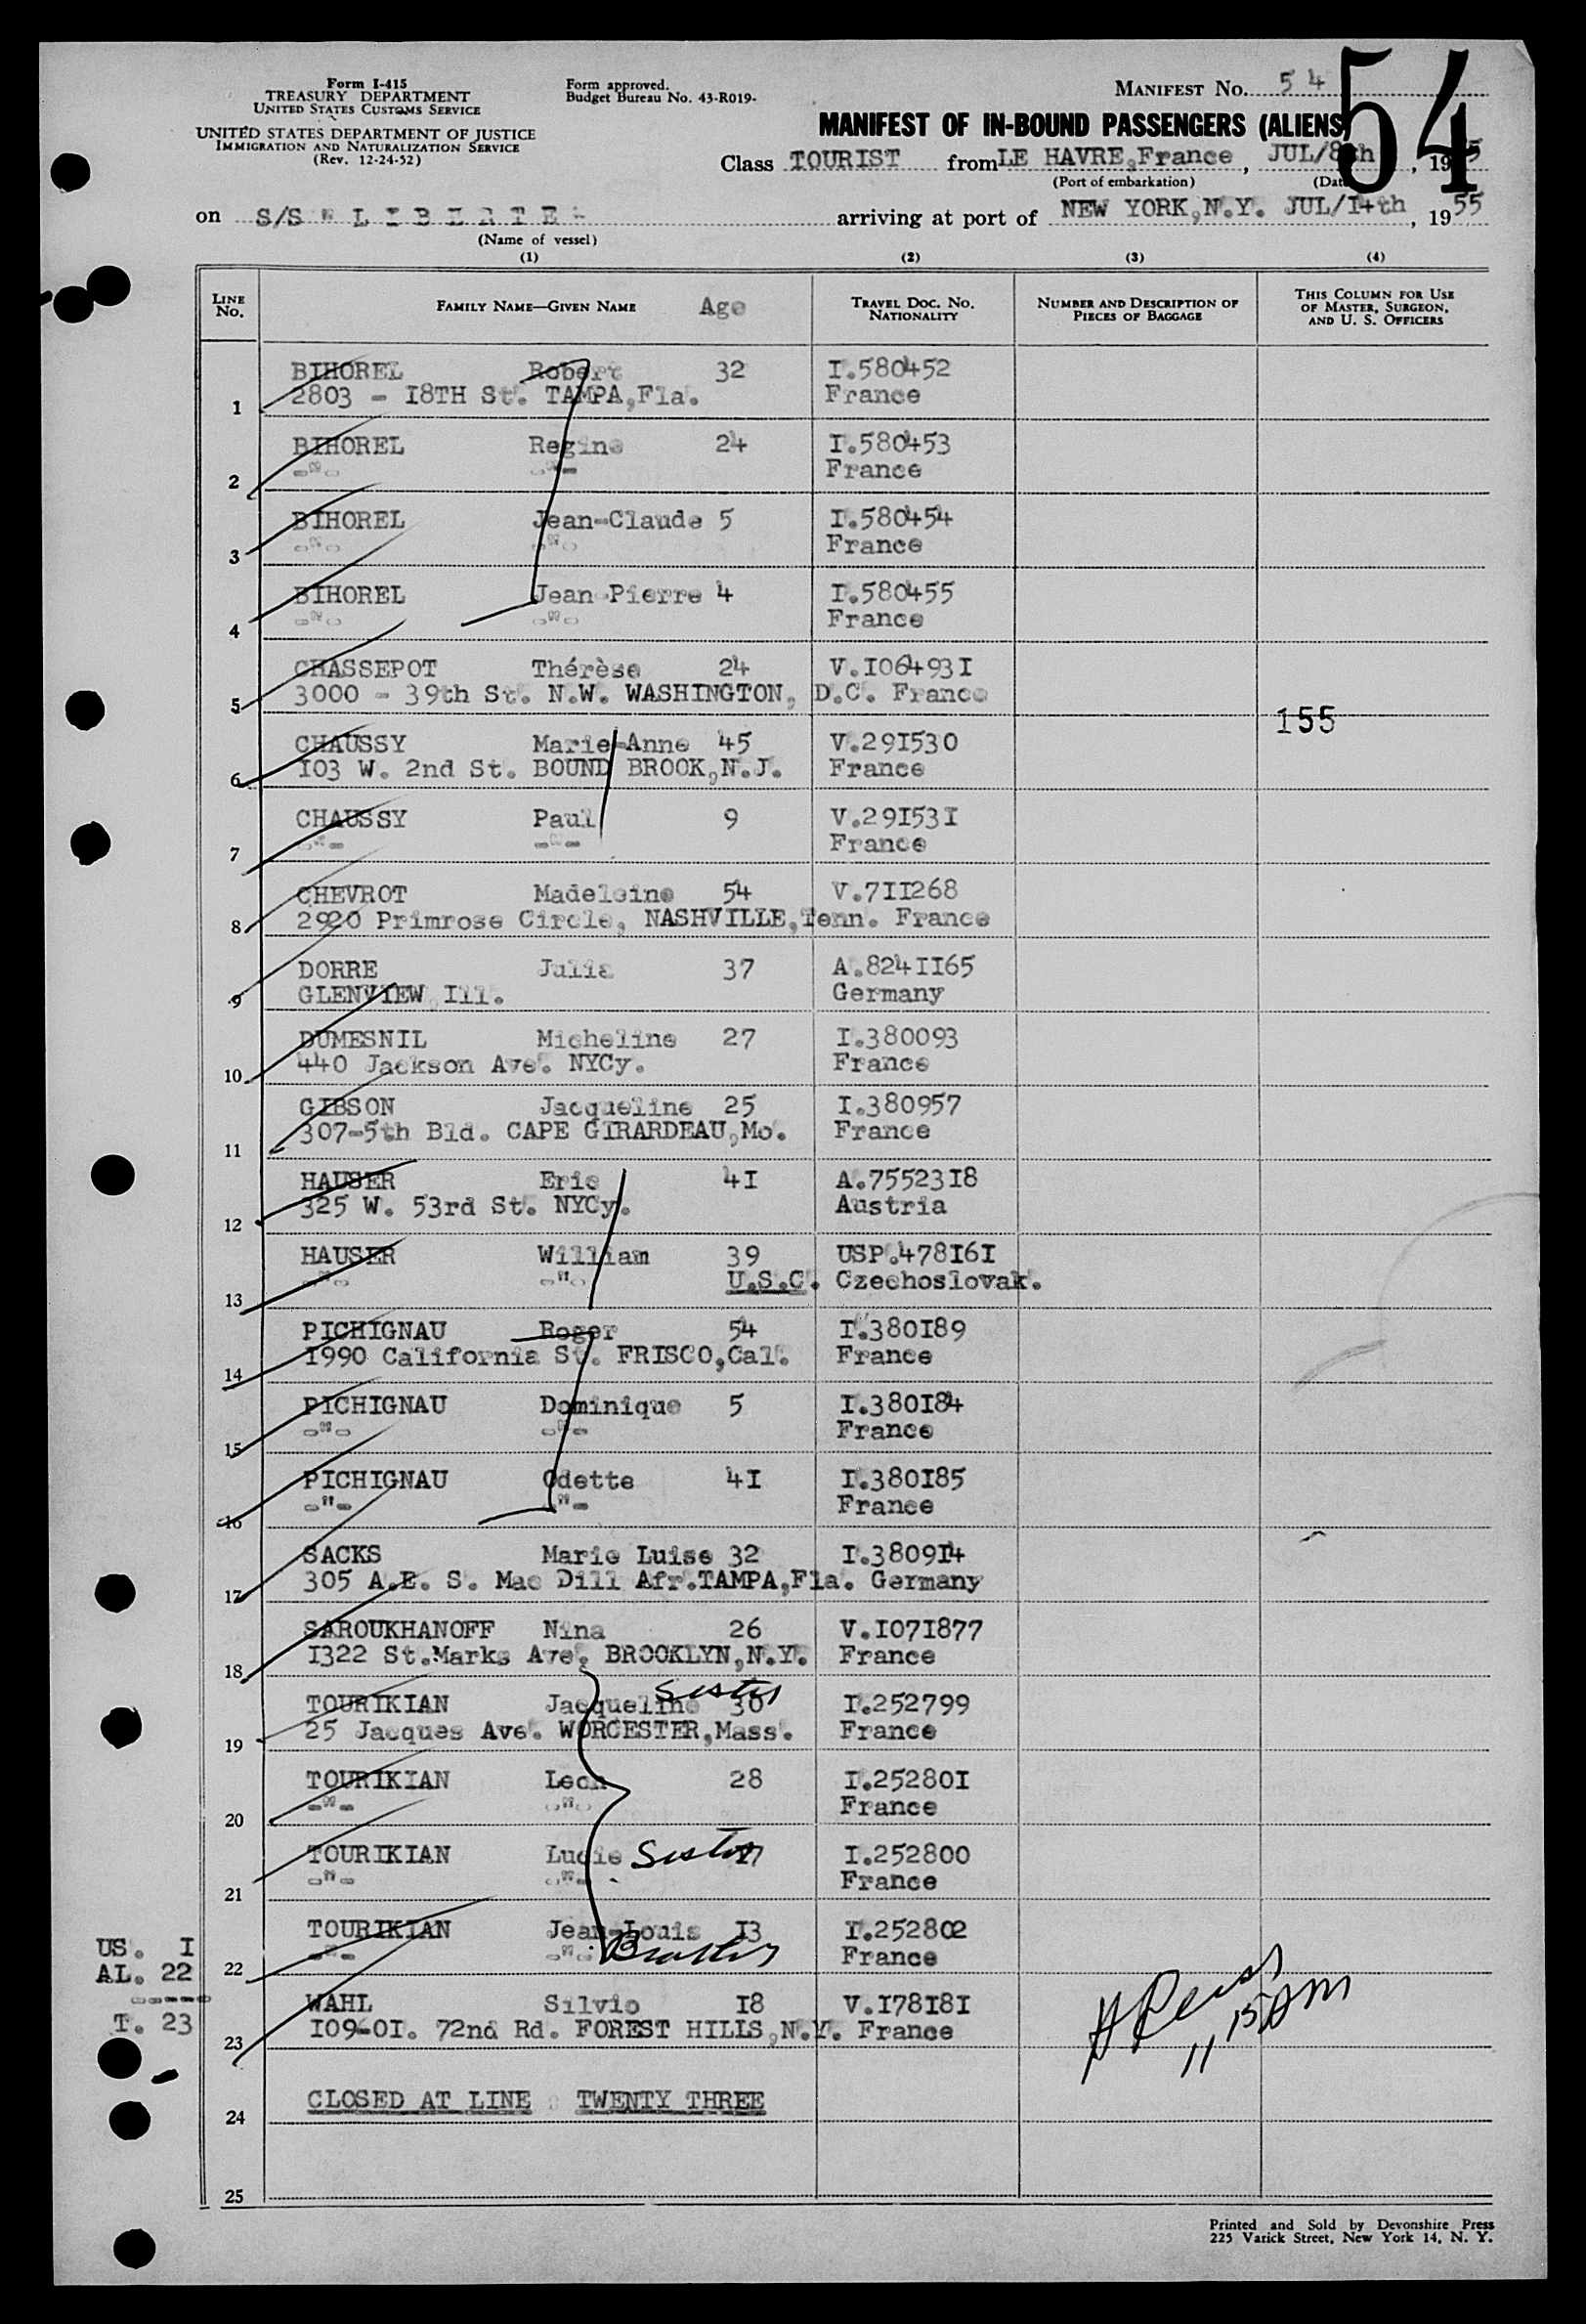 Form I-415
TREASURY DEPARTMENT
UNITED STATES CUSTOMS SERVICE
UNITED STATES DEPARTMENT OF JUSTICE
IMMIGRATION AND NATURALIZATION SERVICE
(Rev. 12-24-52)
Form approved.
Budget Bureau No. 43-R019-
MANIFEST NO. 54
54
MANIFEST OF IN-BOUND PASSENGERS (ALIENS)
Class TOURIST from LE HAVRE,France, JUL/8th, 1955
(Port of embarkation) (Date)
on S/S " L I B E R T E " arriving at port of NEW YORK,N.Y. JUL/I4th, 1955
(Name of vessel)
(1) (2) (3) (4)
LINE No. FAMILY NAME—GIVEN NAME Age TRAVEL DOC. NO. NATIONALITY NUMBER AND DESCRIPTION OF PIECES OF BAGGAGE THIS COLUMN FOR USE OF MASTER, SURGEON, AND U. S. OFFICERS
BIHOREL Robert 32 I.580452
1 2803 - I8TH St. TAMPA,Fla. France
BIHOREL Regine 24 I.580453
2 -"- -"- France
BIHOREL Jean-Claude 5 I.580454
3 -"- -"- France
BIHOREL Jean-Pierre 4 I.580455
4 -"- -"- France
CHASSEPOT Thérèse 24 V.I06493I
5 3000 - 39th St. N.W. WASHINGTON, D.C. France
155
CHAUSSY Marie-Anne 45 V.29I530
6 I03 W. 2nd St. BOUND BROOK,N.J. France
CHAUSSY Paul 9 V.29I53I
7 -"- -"- France
CHEVROT Madeleine 54 V.7II268
8 2920 Primrose Circle, NASHVILLE,Tenn. France
DORRE Julia 37 A.824II65
9 GLENVIEW,Ill. Germany
DUMESNIL Micheline 27 I.380093
10 440 Jackson Ave. NYCy. France
GIBSON Jacqueline 25 I.380957
11 307-5th Bld. CAPE GIRARDEAU,Mo. France
HAUSER Eric 4I A.75523I8
12 325 W. 53rd St. NYCy. Austria
HAUSER William 39 USP.478I6I
13 -"- -"- U.S.C. Czechoslovak.
PICHIGNAU Roger 54 I.380I89
14 I990 California St. FRISCO,Cal. France
PICHIGNAU Dominique 5 I.380I84
15 -"- -"- France
PICHIGNAU Odette 4I I.380I85
16 -"- -"- France
SACKS Marie Luise 32 I.3809I4
17 305 A.E. S. Mac Dill Afr.TAMPA,Fla. Germany
SAROUKHANOFF Nina 26 V.I07I877
18 I322 St.Marks Ave. BROOKLYN,N.Y. France
Sister
TOURIKIAN Jacqueline 30 I.252799
19 25 Jacques Ave. WORCESTER,Mass. France
TOURIKIAN Leon 28 I.25280I
20 -"- -"- France
TOURIKIAN Lucie Sister I7 I.252800
21 -"- -"- France
TOURIKIAN Jean-Louis I3 I.252802
22 -"- -"- Brother France
US. I
AL. 22
-----
T. 23
WAHL Silvio I8 V.I78I8I
23 I09-0I. 72nd Rd. FOREST HILLS,N.Y. France
11 15 AM
24 CLOSED AT LINE TWENTY THREE
25
Printed and Sold by Devonshire Press
225 Varick Street, New York 14, N. Y.